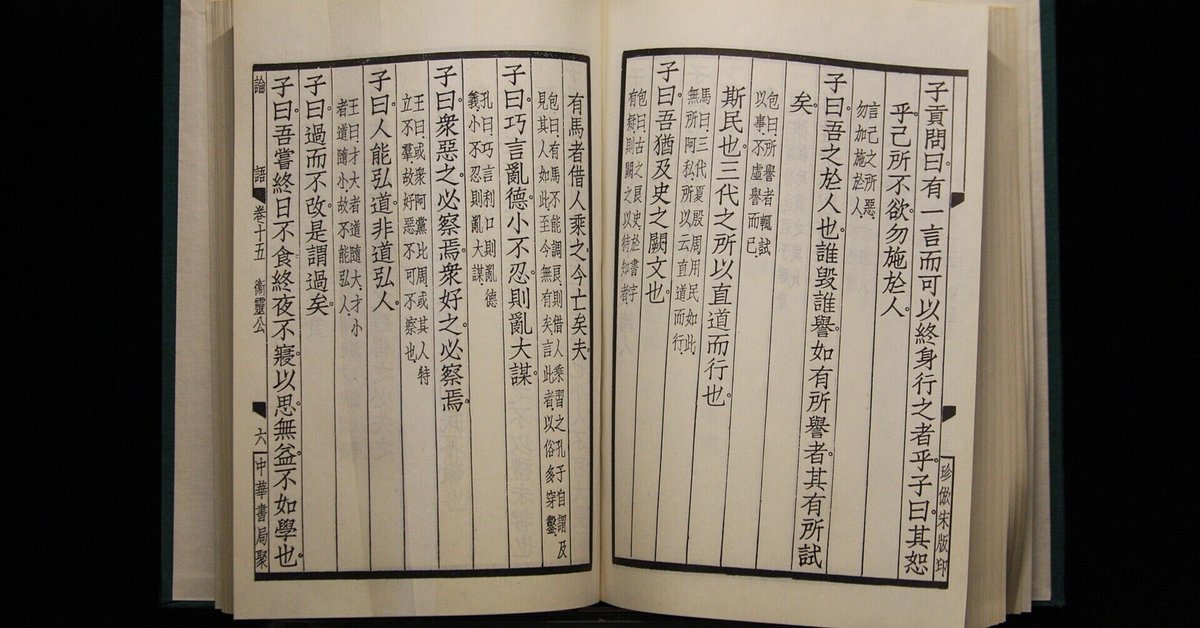 珍倣宋版印
子貢問曰。有一言而可以終身行之者乎。子曰。其恕
乎。己所不欲。勿施於人。
言己之所惡。
勿加施於人
子曰。吾之於人也。誰毀誰譽。如有所譽者。其有所試
矣。
包曰。所譽者。輒試
以事。不虛譽而已
斯民也。三代之所以直道而行也。
馬曰。三代夏殷周。用民如此。
無所阿私。所以云直道而行。
子曰。吾猶及史之闕文也。
包曰。古之良史。於書字
有疑則闕之。以待知者。
有馬者借人乘之。今亡矣夫。
包曰。有馬不能調良。則借人乘習之。孔子自謂及
見其人如此。至今無有矣。言此者。以俗多穿鑿。
子曰。巧言亂德。小不忍則亂大謀。
孔曰。巧言利口。則亂德
義。小不忍。則亂大謀。
子曰。衆惡之。必察焉。衆好之。必察焉。
王曰。或衆阿黨比周。或其人特
立不羣。故好惡不可不察也。
子曰。人能弘道。非道弘人。
王曰。才大者。道隨大。才小
者。道隨小。故不能弘人。
子曰。過而不改。是謂過矣。
子曰。吾嘗終日不食。終夜不寢。以思。無益。不如學也。
論語 卷十五 衞靈公 六 中華書局聚